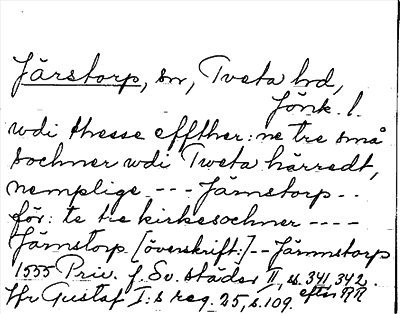 Järstorp, sn, Tveta hd,
Jönk. l.
wdi thesse effther:ne tre små
sochner wdi Tweta härredt,
nemplige --- Jämstorp --
för:te tre kirkesochner ----
Jämstorp [överskrift:] -- Jämmstorp
1555 Priv. f. Sv. städer II, ss. 341, 342.
efter RR
Hfr Gustaf I:s reg. 25, s. 109.